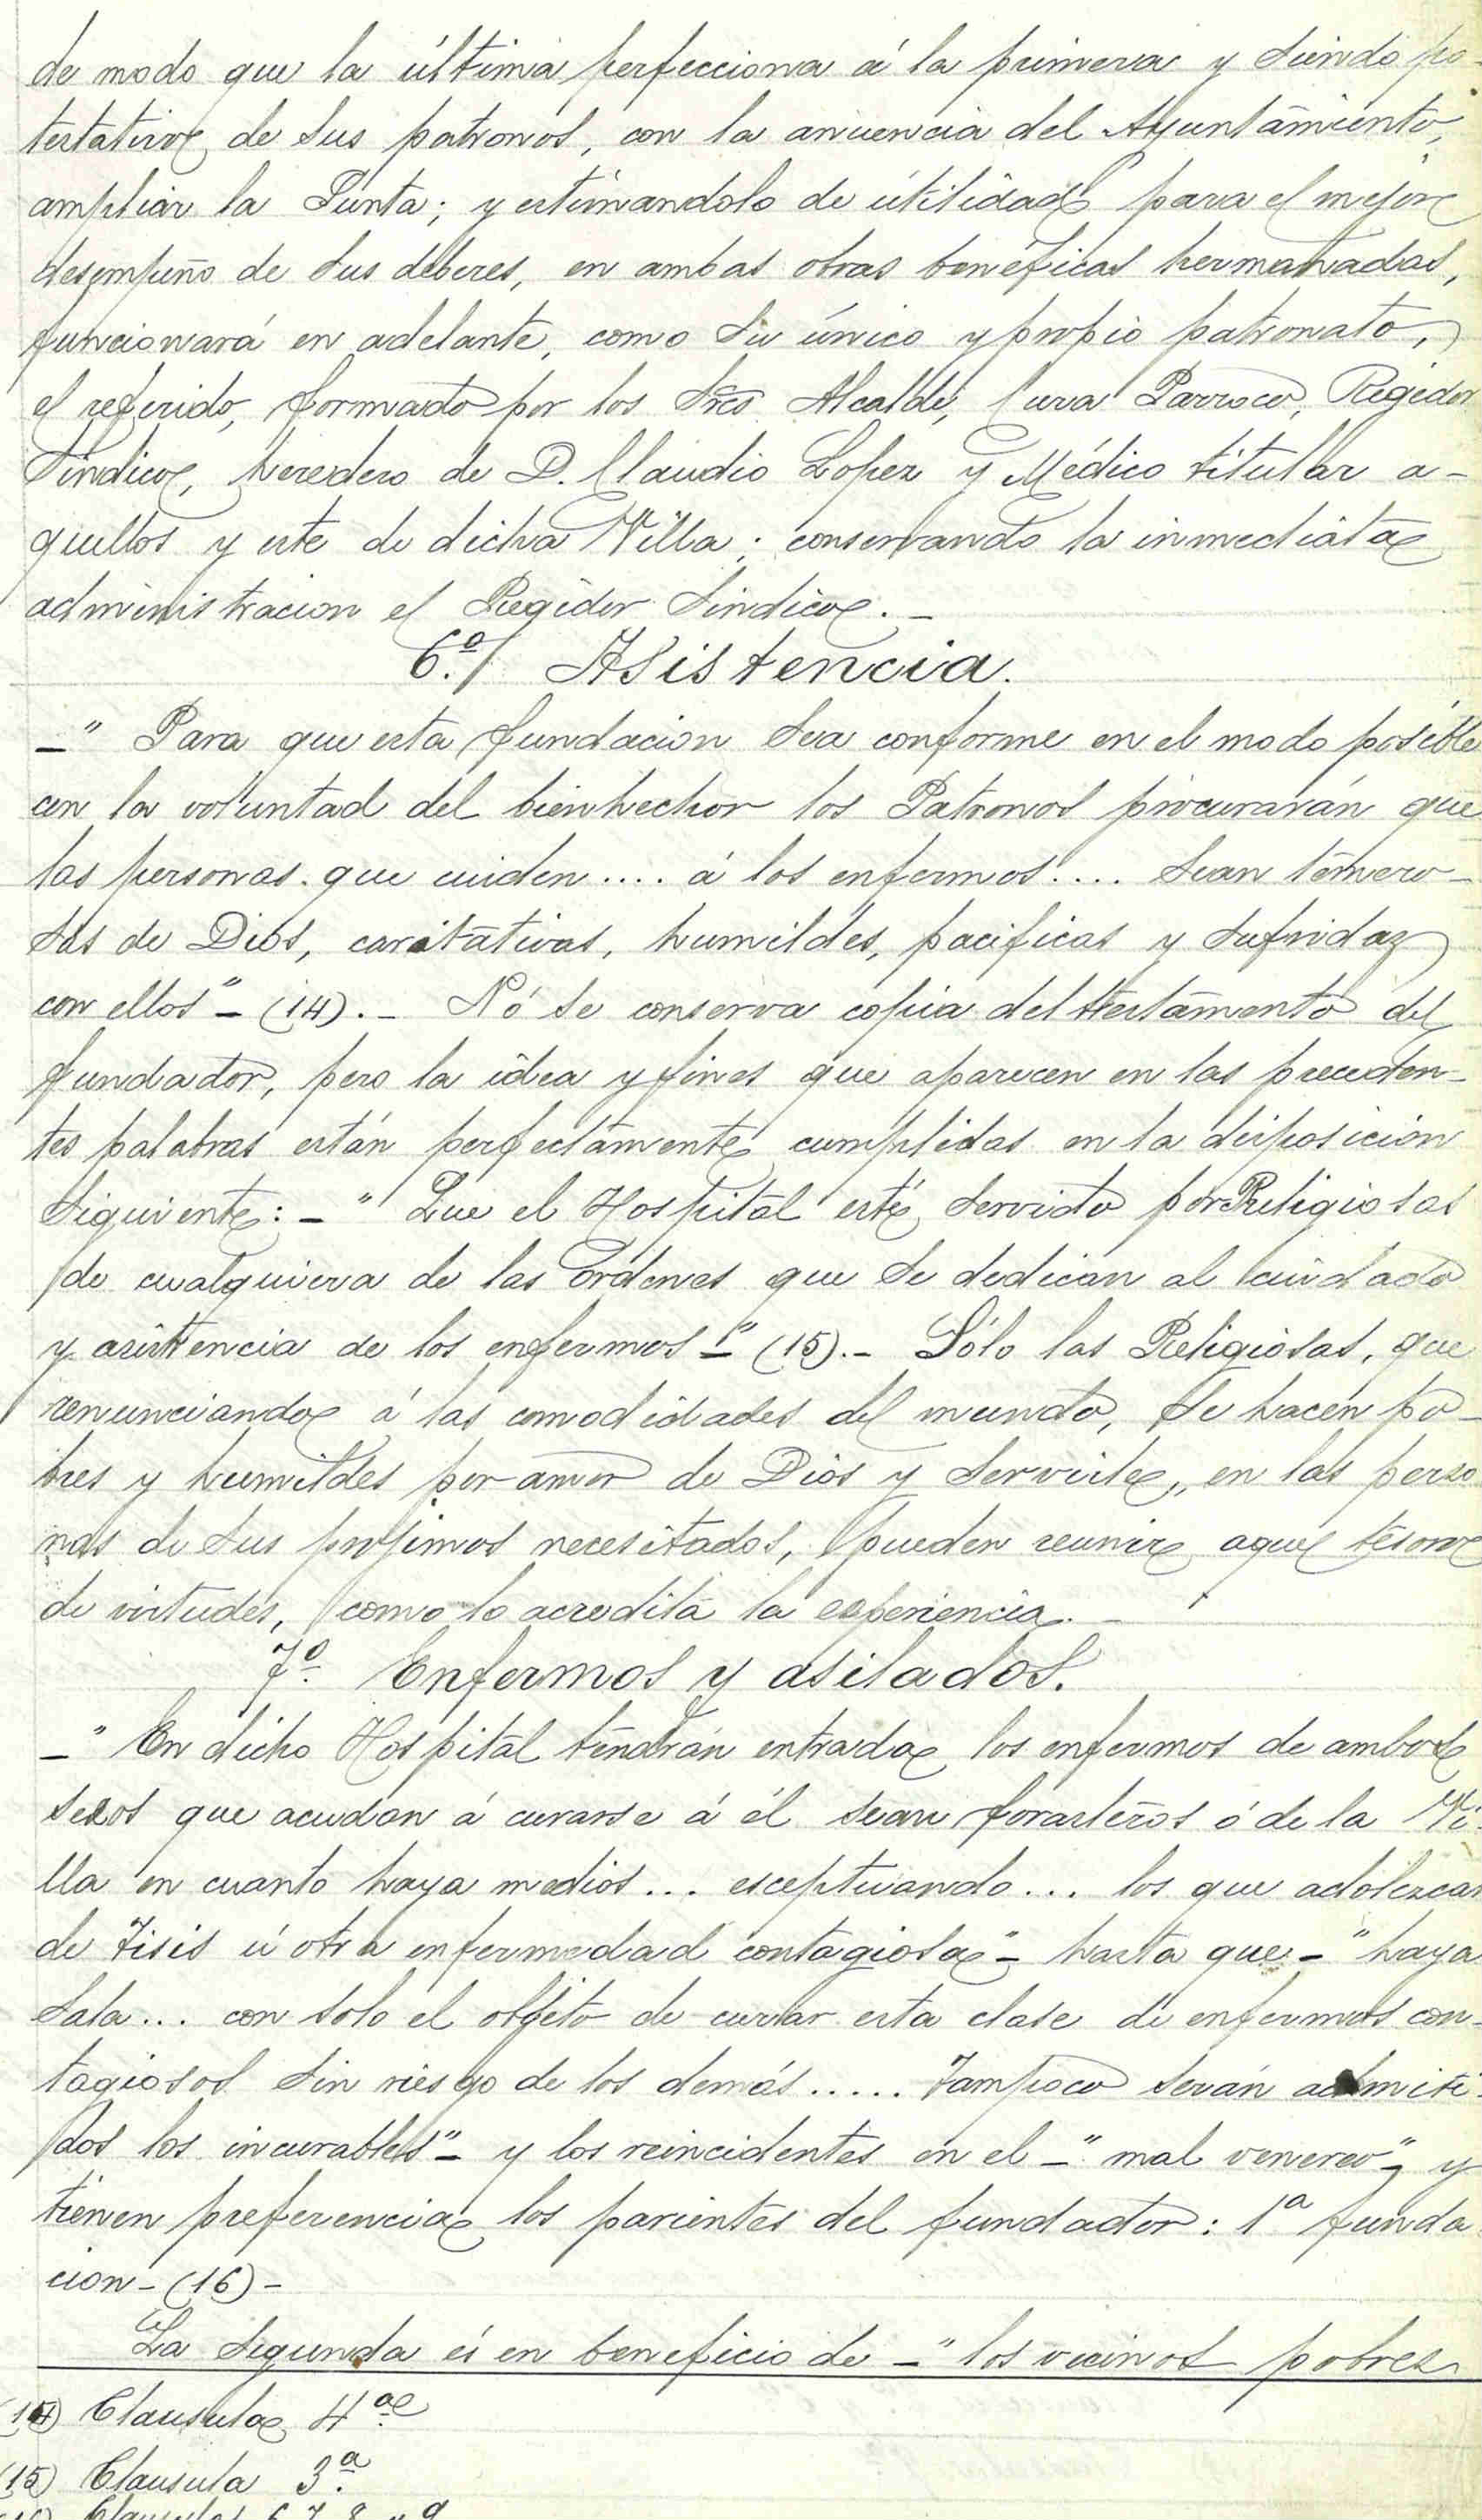 de modo que la última perfecciona á la primera y siendo po-
testativo de sus patronos, con la anuencia del Ayuntamiento,
ampliar la Junta; y estimandolo de útilidad para el mejor
desempeño de sus deberes, en ambas obras benéficas hermanadas,
funcionará en adelante, como su único y propio patronato,
el referido, formado por los Sres Alcalde, Cura Parroco, Regidor
Sindico, heredero de D. Claudio Lopez y Médico titular a-
quellos y este de dicha Villa; conservando la inmediata
administracion el Regidor Sindico. _
6.º/ Asistencia.
_" Para que esta fundacion sea conforme en el modo posible
con la voluntad del bienhechor los Patronos procurarán que
las personas que cuiden .... á los enfermos .... sean temero-
sas de Dios, caritativas, humildes, pacificas y sufridas
con ellos" _ (14). _ Nó se conserva copia del testamento del
fundador, pero la idea y fines que aparecen en las preceden-
tes palabras están perfectamente cumplidas en la disposicion
siguiente: _ " Que el Hospital esté servido por Religiosas
de cualquiera de las órdenes que se dedican al cuidado
y asistencia de los enfermos _" (15). _ Sólo las Religiosas, que
renunciando á las comodidades del mundo, se hacen po-
bres y humildes por amor de Dios y servirle, en las perso
nas de sus projimos necesitados, pueden reunir aquel tesoro
de virtudes, como lo acredita la esperiencia. _
7º Enfermos y asilados.
_" En dicho Hospital tendrán entrada los enfermos de ambos
sexos que acudan á curarse á él sean forasteros ó de la Vi-
lla en cuanto haya medios ... esceptuando ... los que adolezcan
de Tisis ú otra enfermedad contagiosa" _ hasta que _ " haya
sala ... con solo el objeto de curar esta clase de enfermos con-
tagiosos sin riesgo de los demás ..... Tampoco serán admiti-
dos los incurables" _ y los reincidentes en el _ " mal venereo" _ y
tienen preferencia los parientes del fundador: 1ª funda
cion _ (16) _
La segunda és en beneficio de _ " los vecinos pobres
(14) Clausula 4ª
(15) Clausula 3ª
(16) Clausulas 6, 7, 8 y 9